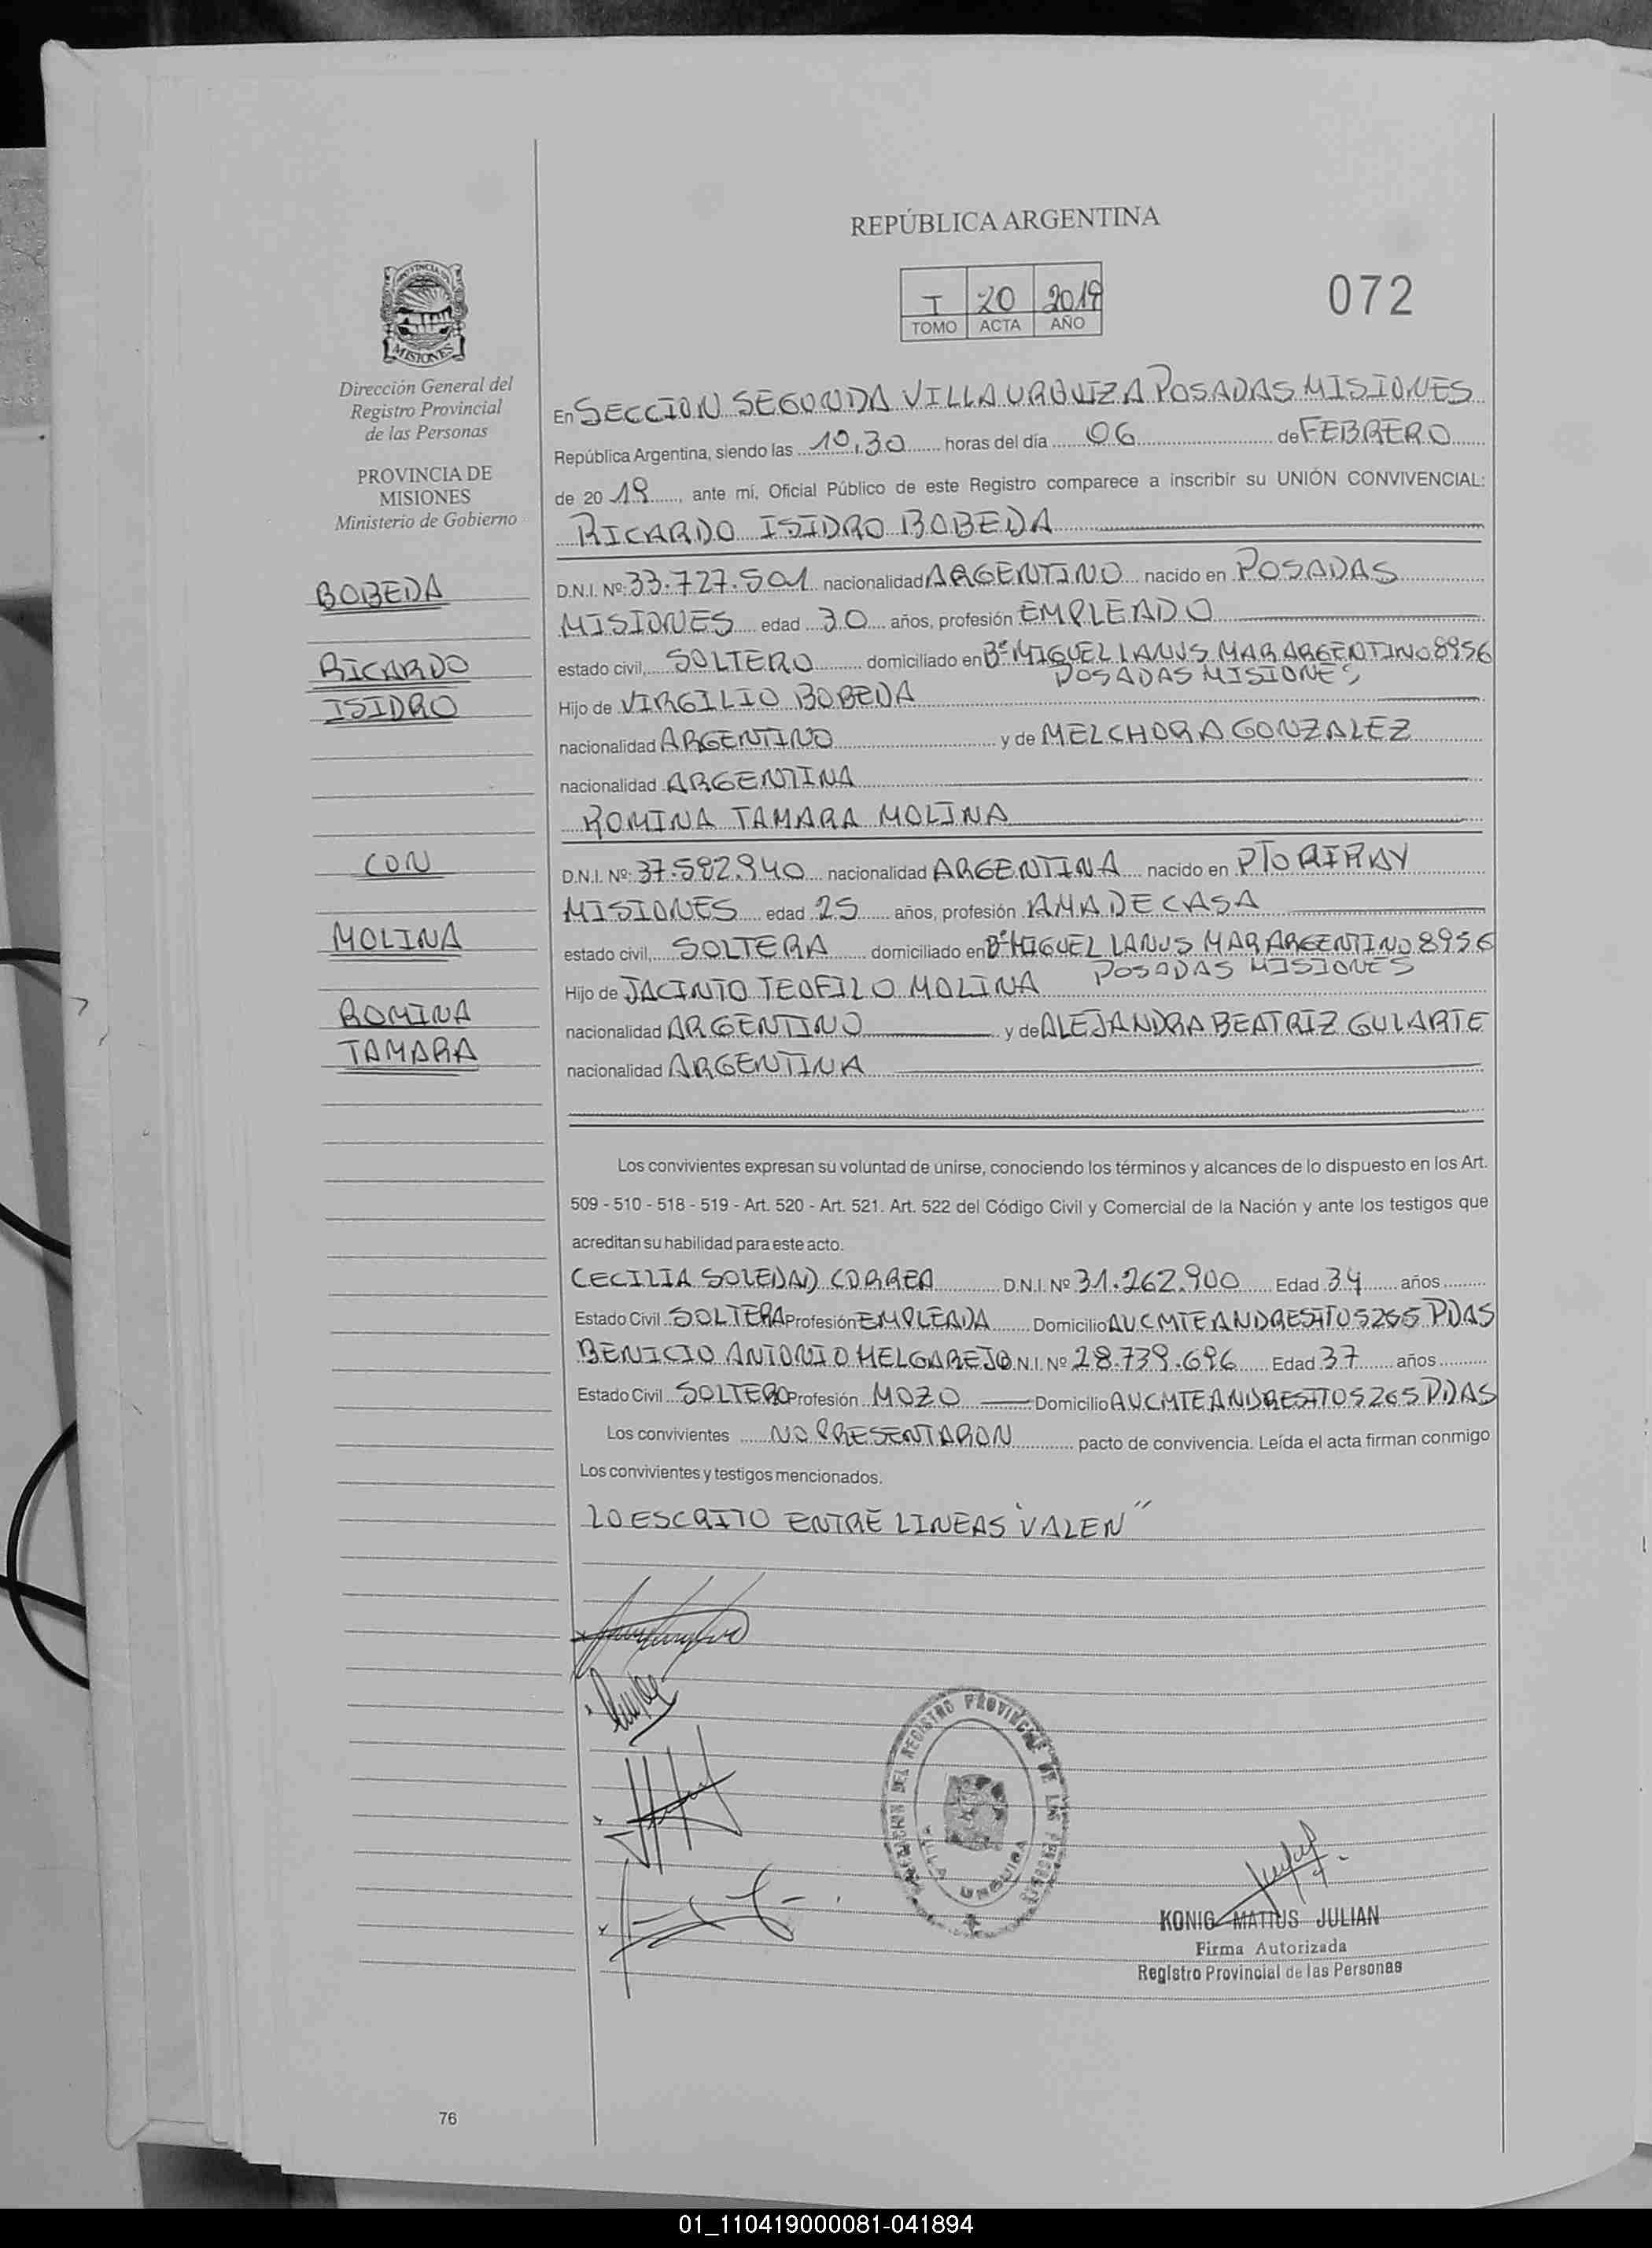 REPÚBLICA ARGENTINA
I 20 2019
TOMO ACTA AÑO
072
PROVINCIA
MISIONES
Dirección General del
Registro Provincial
de las Personas
PROVINCIA DE
MISIONES
Ministerio de Gobierno
BOBEDA
RICARDO
ISIDRO
CON
MOLINA
ROMINA
TAMARA
En SECCION SEGUNDA VILLA URQUIZA POSADAS MISIONES
República Argentina, siendo las 10,30 horas del día 06 de FEBRERO
de 20 19, ante mí, Oficial Público de este Registro comparece a inscribir su UNIÓN CONVIVENCIAL:
RICARDO ISIDRO BOBEDA
D.N.I. Nº: 33.727.501 nacionalidad ARGENTINO nacido en POSADAS
MISIONES edad 30 años, profesión EMPLEADO
estado civil, SOLTERO domiciliado en Bº MIGUEL LANUS MAR ARGENTINO 8956
POSADAS MISIONES
Hijo de VIRGILIO BOBEDA
nacionalidad ARGENTINO y de MELCHORA GONZALEZ
nacionalidad ARGENTINA
ROMINA TAMARA MOLINA
D.N.I. Nº: 37.582.940 nacionalidad ARGENTINA nacido en PTO RIRAY
MISIONES edad 25 años, profesión AMA DE CASA
estado civil, SOLTERA domiciliado en Bº MIGUEL LANUS MAR ARGENTINO 8956
POSADAS MISIONES
Hijo de JACINTO TEOFILO MOLINA
nacionalidad ARGENTINO y de ALEJANDRA BEATRIZ GULARTE
nacionalidad ARGENTINA
Los convivientes expresan su voluntad de unirse, conociendo los términos y alcances de lo dispuesto en los Art.
509 - 510 - 518 - 519 - Art. 520 - Art. 521. Art. 522 del Código Civil y Comercial de la Nación y ante los testigos que
acreditan su habilidad para este acto.
CECILIA SOLEDAD CORREA D.N.I. Nº 31.262.900 Edad 34 años
Estado Civil SOLTERA Profesión EMPLEADA Domicilio AV CMTE ANDRESITO 5265 PDAS
BENICIO ANTONIO MELGAREJO D.N.I. Nº 28.739.696 Edad 37 años
Estado Civil SOLTERO Profesión MOZO Domicilio AV CMTE ANDRESITO 5265 PDAS
Los convivientes NO PRESENTARON pacto de convivencia. Leída el acta firman conmigo
Los convivientes y testigos mencionados.
LO ESCRITO ENTRE LINEAS "VALEN"
DEL REGISTRO PROVINCIAL DE LAS PERSONAS
VILLA URQUIZA
KONIG MATIUS JULIAN
Firma Autorizada
Registro Provincial de las Personas
76
01_110419000081-041894